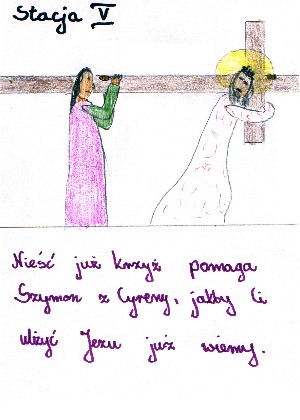 Stacja V
Nieść już krzyż pomaga
Szymon z Cyreny, jakby Ci
ulżyć Jezu już wiemy.